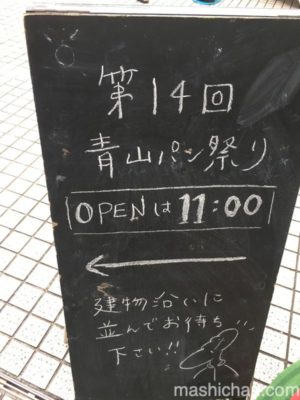 第14回
青山パン祭り
OPENは11:00
←
建物沿いに
並んでお待ち
下さい!!
mashichan.com